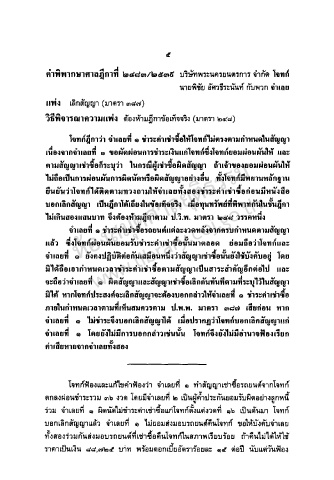 ๕
คำพิพากษาศาลฎีกาที่ ๒๔๘๓/๒๕๓๙ บริษัทพระนครยนตรการ จำกัด โจทก์
นายพิชัย อัศวธีระนันท์ กับพวก จำเลย
แพ่ง เลิกสัญญา (มาตรา ๓๘๗)
วิธีพิจารณาความแพ่ง ต้องห้ามฎีกาข้อเท็จจริง (มาตรา ๒๔๘)
โจทก์ฎีกาว่า จำเลยที่ ๑ ชำระค่าเช่าซื้อให้โจทก์ไม่ตรงตามกำหนดในสัญญา
เนื่องจากจำเลยที่ ๑ ขอผัดผ่อนการชำระเงินแก่โจทก์ซึ่งโจทก์ยอมผ่อนผันให้ และ
ตามสัญญาเช่าซื้อก็ระบุว่า ในกรณีผู้เช่าซื้อผิดสัญญา ถ้าเจ้าของยอมผ่อนผันให้
ไม่ถือเป็นการผ่อนผันการผิดนัดหรือผิดสัญญาอย่างอื่น ทั้งโจทก์มีพยานหลักฐาน
ยืนยันว่าโจทก์ได้ติดตามทวงถามให้จำเลยทั้งสองชำระค่าเช่าซื้อก่อนมีหนังสือ
บอกเลิกสัญญา เป็นฎีกาโต้เถียงในข้อเท็จจริง เมื่อทุนทรัพย์ที่พิพาทกันในชั้นฎีกา
ไม่เกินสองแสนบาท จึงต้องห้ามฎีกาตาม ป.วิ.พ. มาตรา ๒๔๘ วรรคหนึ่ง
จำเลยที่ ๑ ชำระค่าเช่าซื้อรถยนต์แต่ละงวดหลังจากครบกำหนดตามสัญญา
แล้ว ซึ่งโจทก์ผ่อนผันยอมรับชำระค่าเช่าซื้อนั้นมาตลอด ย่อมถือว่าโจทก์และ
จำเลยที่ ๑ ยังคงปฏิบัติต่อกันเสมือนหนึ่งว่าสัญญาเช่าซื้อนั้นยังใช้บังคับอยู่ โดย
มิได้ถือเอากำหนดเวลาชำระค่าเช่าซื้อตามสัญญาเป็นสาระสำคัญอีกต่อไป และ
จะถือว่าจำเลยที่ ๑ ผิดสัญญาและสัญญาเช่าซื้อเลิกกันทันทีตามที่ระบุไว้ในสัญญา
มิได้ หากโจทก์ประสงค์จะเลิกสัญญาจะต้องบอกกล่าวให้จำเลยที่ ๑ ชำระค่าเช่าซื้อ
ภายในกำหนดเวลาตามที่เห็นสมควรตาม ป.พ.พ. มาตรา ๓๘๗ เสียก่อน หาก
จำเลยที่ ๑ ไม่ชำระจึงบอกเลิกสัญญาได้ เมื่อปรากฏว่าโจทก์บอกเลิกสัญญาแก่
จำเลยที่ ๑ โดยยังไม่มีการบอกกล่าวเช่นนั้น โจทก์จึงยังไม่มีอำนาจฟ้องเรียก
ค่าเสียหายจากจำเลยทั้งสอง
โจทก์ฟ้องและแก้ไขคำฟ้องว่า จำเลยที่ ๑ ทำสัญญาเช่าซื้อรถยนต์จากโจทก์
ตกลงผ่อนชำระรวม ๓๖ งวด โดยมีจำเลยที่ ๒ เป็นผู้ค้ำประกันยอมรับผิดอย่างลูกหนี้
ร่วม จำเลยที่ ๑ ผิดนัดไม่ชำระค่าเช่าซื้อแก่โจทก์ตั้งแต่งวดที่ ๑๖ เป็นต้นมา โจทก์
บอกเลิกสัญญาแล้ว จำเลยที่ ๑ ไม่ยอมส่งมอบรถยนต์คืนโจทก์ ขอให้บังคับจำเลย
ทั้งสองร่วมกันส่งมอบรถยนต์ที่เช่าซื้อคืนโจทก์ในสภาพเรียบร้อย ถ้าคืนไม่ได้ให้ใช้
ราคาเป็นเงิน ๘๘,๗๒๕ บาท พร้อมดอกเบี้ยอัตราร้อยละ ๑๕ ต่อปี นับแต่วันฟ้อง